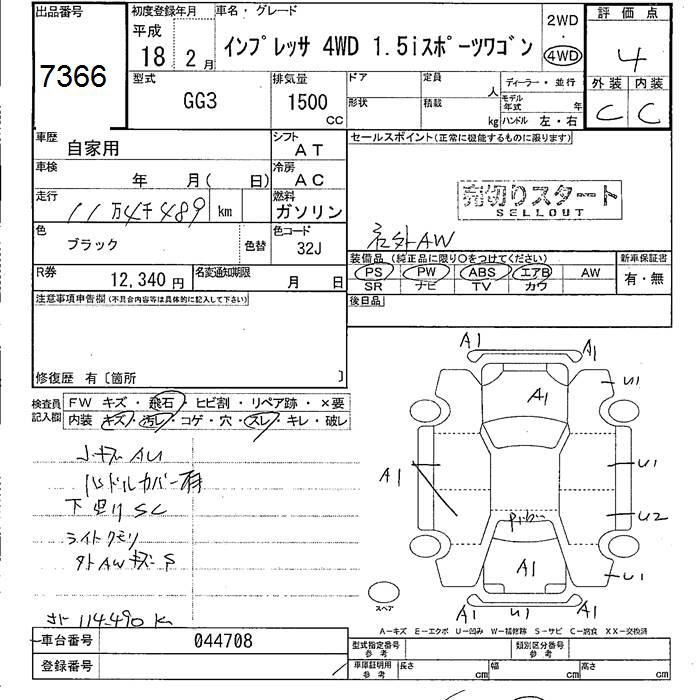 出品番号 初度登録年月 車名・グレード 2WD 評価点
7366 平成 18年2月 インプレッサ 4WD 1.5iスポーツワゴン ・ 4WD 4
型式 排気量 ドア 定員 人 ディーラー・並行 外装 内装
GG3 1500 CC 形状 積載 kg モデル年式 年 ハンドル 左・右 C C
車歴 自家用 シフト AT セールスポイント(正常に機能するものに限ります)
車検 年 月( 日) 冷房 AC
売切りスタート
SELLOUT
走行 11万4千489 km 燃料 ガソリン
社外AW
色 ブラック 色替 色コード 32J
装備品 (純正品に限り○をつけてください) 新車保証書
PS PW ABS エアB AW 有・無
SR ナビ TV カワ
R券 12,340円 名変通知期限 月 日
後日品
注意事項申告欄(不具合内容等は具体的に記入して下さい)
修復歴 有〔箇所 〕
検査員記入欄 FW キズ・飛石・ヒビ割・リペア跡・×要
内装 キズ・汚レ・コゲ・穴・スレ・キレ・破レ
ハンドルカバー有
下回りSC
ライトクモリ
外AWキズS
114490K
A1 A1
A1 U1
A1 U1
U2
A1 U1
A1 U1 A1
スペア
A-キズ E-エクボ U-凹み W-補修跡 S-サビ C-腐食 XX-交換済
車台番号 044708 型式指定番号 参考 類別区分番号 参考
登録番号 車庫証明用 参考 長さ cm 幅 cm 高さ cm